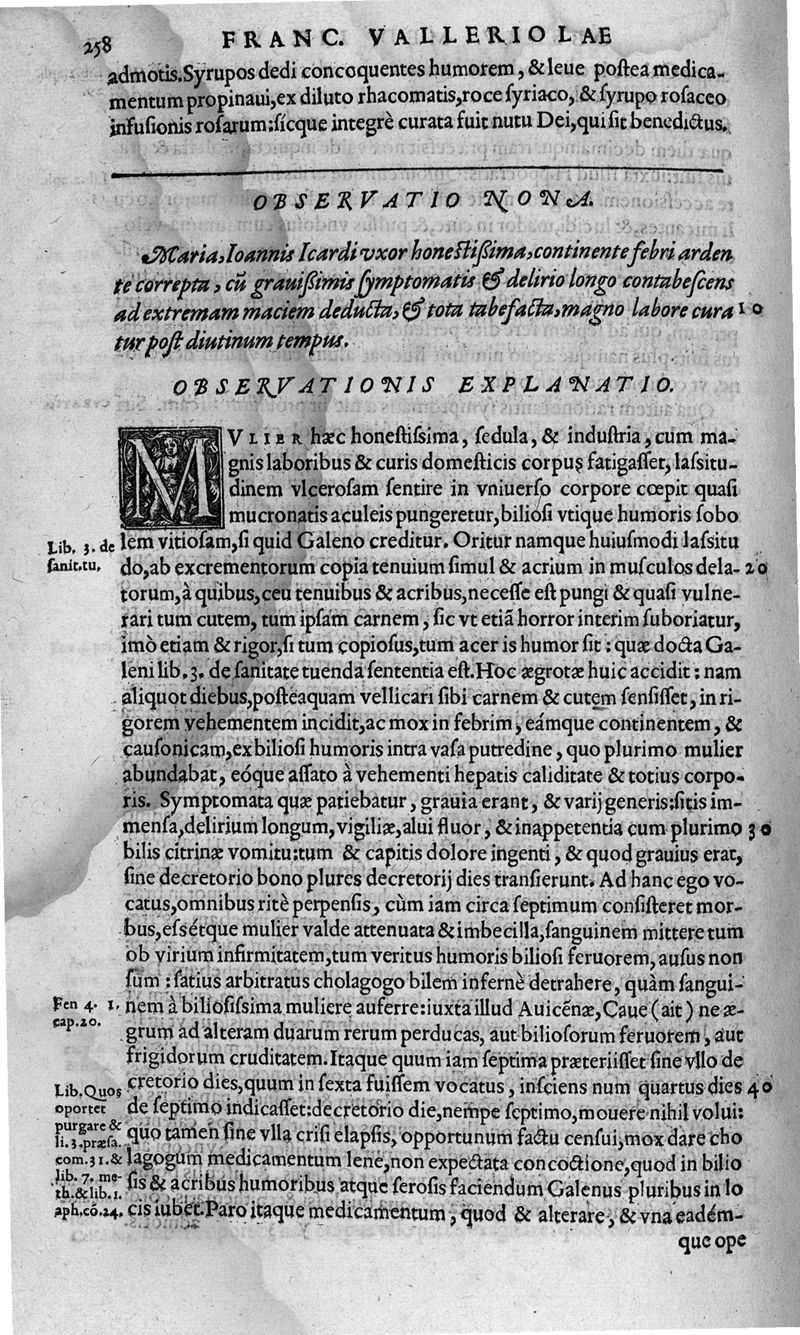 258 FRANC. VALLERIOLAE
admotis.Syrupos dedi concoquentes humorem, & leue postea medica-
mentum propinaui,ex diluto rhacomatis,roce syriaco, & syrupo rosaceo
infusionis rosarum:sicque integrè curata fuit nutu Dei,qui sit benedictus.
OBSERVATIO NONA.
Maria,Ioannis Icardi vxor honestißima,continente febri arden
te correpta, cũ grauißimis symptomatis & delirio longo contabescens
ad extremam maciem deducta,& tota tabefacta,magno labore cura 10
tur post diutinum tempus.
OBSERVATIONIS EXPLANATIO.
MVLIER hæc honestissima, sedula, & industria, cum ma-
gnis laboribus & curis domesticis corpus fatigasset, lassitu-
dinem vlcerosam sentire in vniuerso corpore cœpit quasi
mucronatis aculeis pungeretur, biliosi vtique humoris sobo
Lib. 3. de lem vitiosam,si quid Galeno creditur. Oritur namque huiusmodi lassitu
sanit.tu. do,ab excrementorum copia tenuium simul & acrium in musculos dela- 20
torum,à quibus,ceu tenuibus & acribus,necesse est pungi & quasi vulne-
rari tum cutem, tum ipsam carnem, sic vt etiã horror interim suboriatur,
imò etiam & rigor,si tum copiosus,tum acer is humor sit : quæ docta Ga-
leni lib.3. de sanitate tuenda sententia est.Hoc ægrotæ huic accidit : nam
aliquot diebus,posteaquam vellicari sibi carnem & cutem sensisset, in ri-
gorem vehementem incidit,ac mox in febrim, eámque continentem, &
causonicam,ex biliosi humoris intra vasa putredine, quo plurimo mulier
abundabat, eóque assato à vehementi hepatis caliditate & totius corpo-
ris. Symptomata quæ patiebatur, grauia erant, & varij generis:sitis im-
mensa,delirium longum,vigiliæ,alui fluor, & inappetentia cum plurimo 30
bilis citrinæ vomitu:tum & capitis dolore ingenti, & quod grauius erat,
sine decretorio bono plures decretorij dies transierunt. Ad hanc ego vo-
catus,omnibus ritè perpensis, cùm iam circa septimum consisteret mor-
bus,essétque mulier valde attenuata & imbecilla,sanguinem mittere tum
ob virium infirmitatem,tum veritus humoris biliosi feruorem, ausus non
sum : satius arbitratus cholagogo bilem infernè detrahere, quàm sangui-
Fen 4. 1. nem à biliosissima muliere auferre:iuxta illud Auicẽnæ, Caue (ait) ne æ-
cap.20. grum ad alteram duarum rerum perducas, aut biliosorum feruorem, aut
frigidorum cruditatem. Itaque quum iam septima præteriisset sine vllo de
Lib.Quos cretorio dies,quum in sexta fuissem vocatus, insciens num quartus dies 40
oportet de septimo indicasset:decretorio die,nempe septimo,mouere nihil volui:
purgare &
li.3.præsa. quo tamen sine vlla crisi elapsis, opportunum factu censui,mox dare cho
com.31.& lagogum medicamentum lene,non expectata concoctione,quod in bilio
lib. 7. me-
th.& lib.1. sis & acribus humoribus atque serosis faciendum Galenus pluribus in lo
aph.cõ.24. cis iubet.Paro itaque medicamentum, quod & alterare, & vna eadém-
que ope